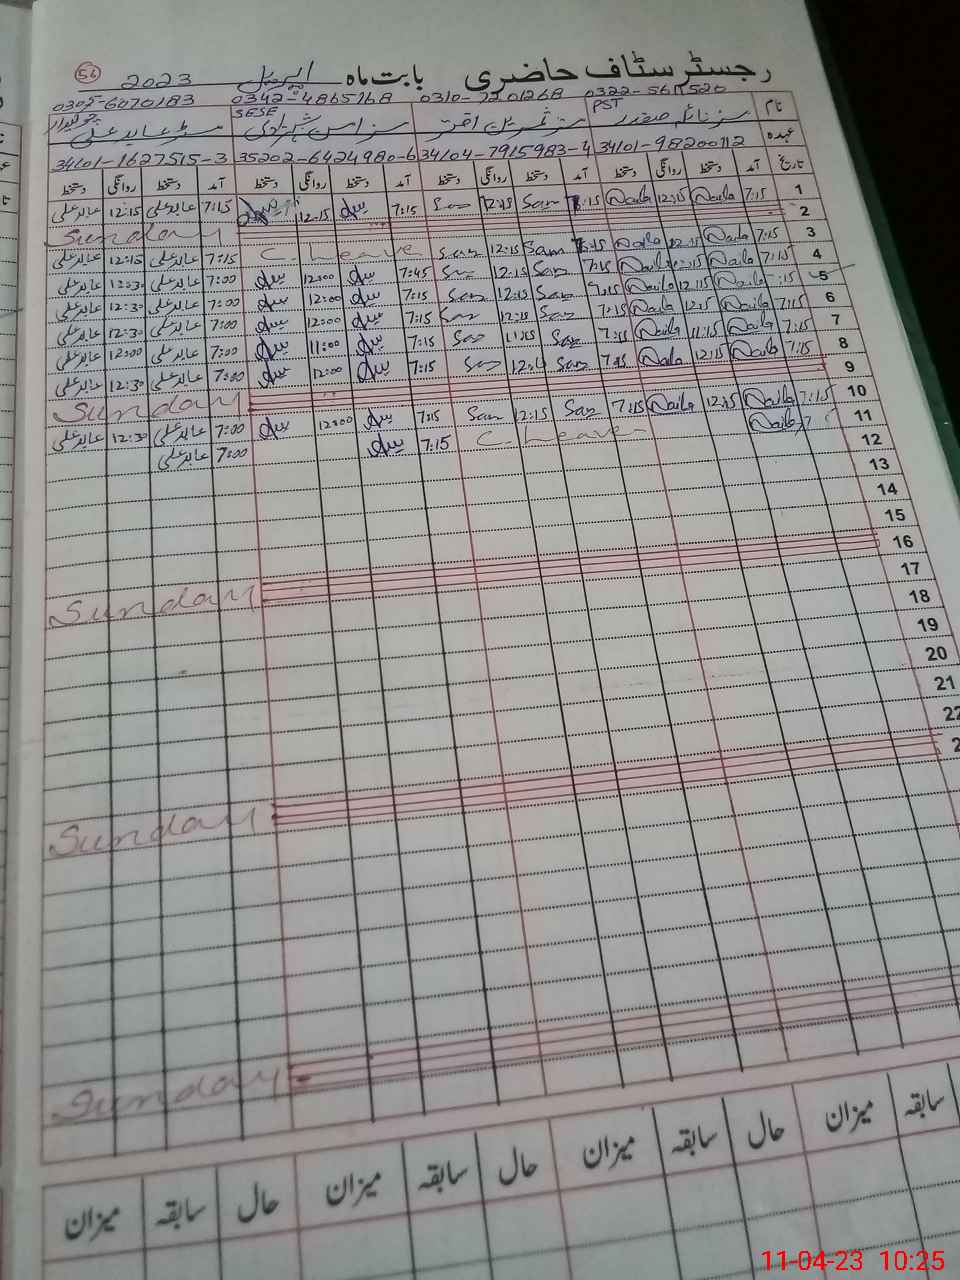 رجسٹر سٹاف حاضری بابت ماہ اپریل 2023
56
0322-5611520 0310-7201268 0342-4865768 0305-6070183
نام PST SESE چوکیدار
مسٹر عابد علی
عہدہ 34101-98200112 34104-7915983-4 35202-6424980-6 34101-1627515-3
تاریخ آمد دستخط روانگی دستخط آمد دستخط روانگی دستخط آمد دستخط روانگی دستخط آمد دستخط روانگی دستخط
1 7:15 Naila 12:15 Naila 7:15 Sam 12:15 7:15 12:15 7:15 عابد علی 12:15 عابد علی
2 Sunday
3 7:15 Naila 12:15 Naila 7:15 Sam 12:15 Sam C. Leave 7:15 عابد علی 12:15 عابد علی
4 7:15 Naila 12:15 Naila 7:15 12:15 7:45 12:00 7:00 عابد علی 12:30 عابد علی
5 7:15 Naila 12:15 Naila 7:15 12:15 7:15 12:00 7:00 عابد علی 12:30 عابد علی
6 7:15 Naila 12:15 Naila 7:15 12:15 7:15 12:00 7:00 عابد علی 12:30 عابد علی
7 7:15 Naila 11:15 Naila 7:15 11:15 7:15 11:00 7:00 عابد علی 12:00 عابد علی
8 7:15 Naila 12:15 Naila 7:15 7:15 12:00 7:00 عابد علی 12:30 عابد علی
9 Sunday
10 7:15 Naila 12:15 Naila 7:15 12:15 7:15 12:00 7:00 عابد علی 12:30 عابد علی
11 Naila C. Leave 7:15 7:00 عابد علی
12
13
14
15
16 Sunday
17
18
19
20
21
22
2 Sunday
Sunday
سابقہ میزان حال سابقہ میزان حال سابقہ میزان حال سابقہ میزان
11-04-23 10:25